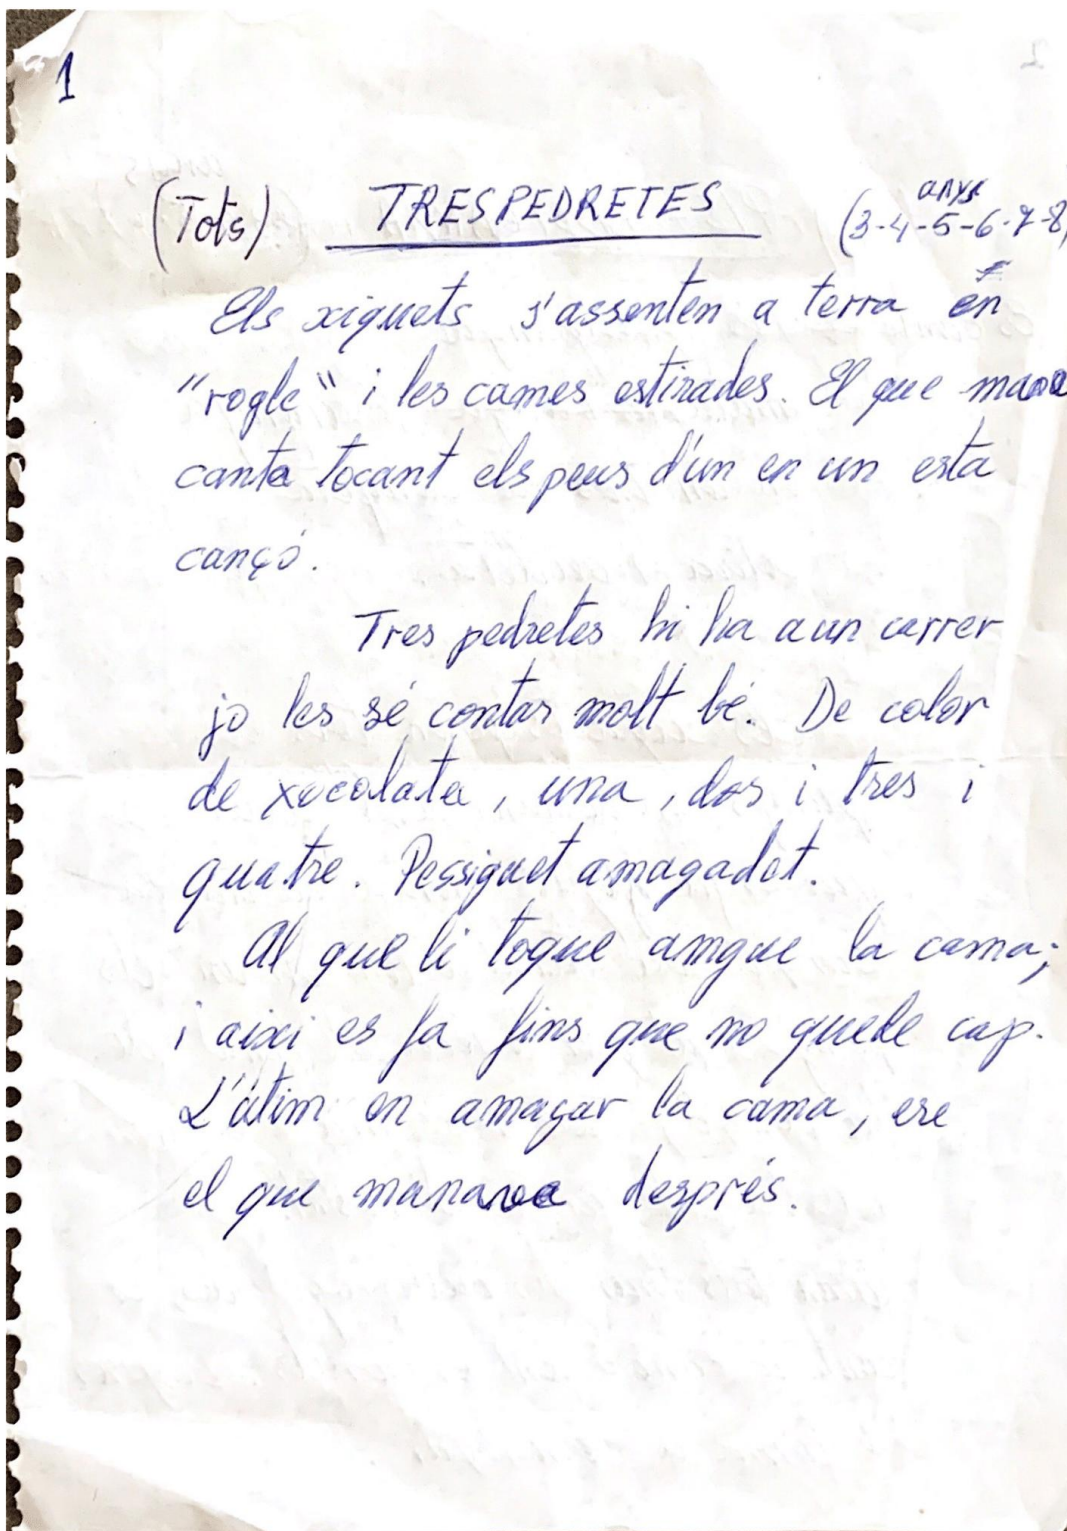 1
(Tots) TRES PEDRETES (3-4-5-6-7-8)
anys
Els xiquets s'assenten a terra en
"rogle" i les cames estirades. El que mana
canta tocant els peus d'un en un esta
cançó.
Tres pedretes hi ha a un carrer
jo les sé contar molt bé. De color
de xocolata, una, dos i tres i
quatre. Pessiguet amagadet.
Al que li toque amgue la cama;
i aixi es fa fins que no quede cap.
L'útim en amagar la cama, ere
el que manava després.